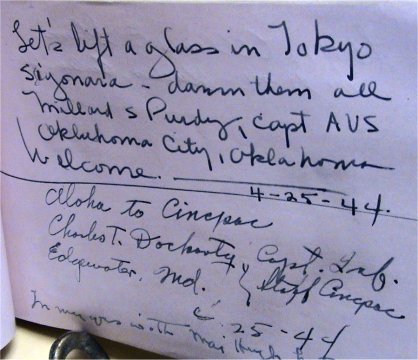 Let's lift a glass in Tokyo
Siyonara - damn them all
Millard S Purdy, Capt AUS
Oklahoma City, Oklahoma
Welcome.
4-25-44.
Aloha to Cincpac
Charles T. Dockarty, Capt. Inf.
Edgewater, Md. Staff Cincpac
25-44
with